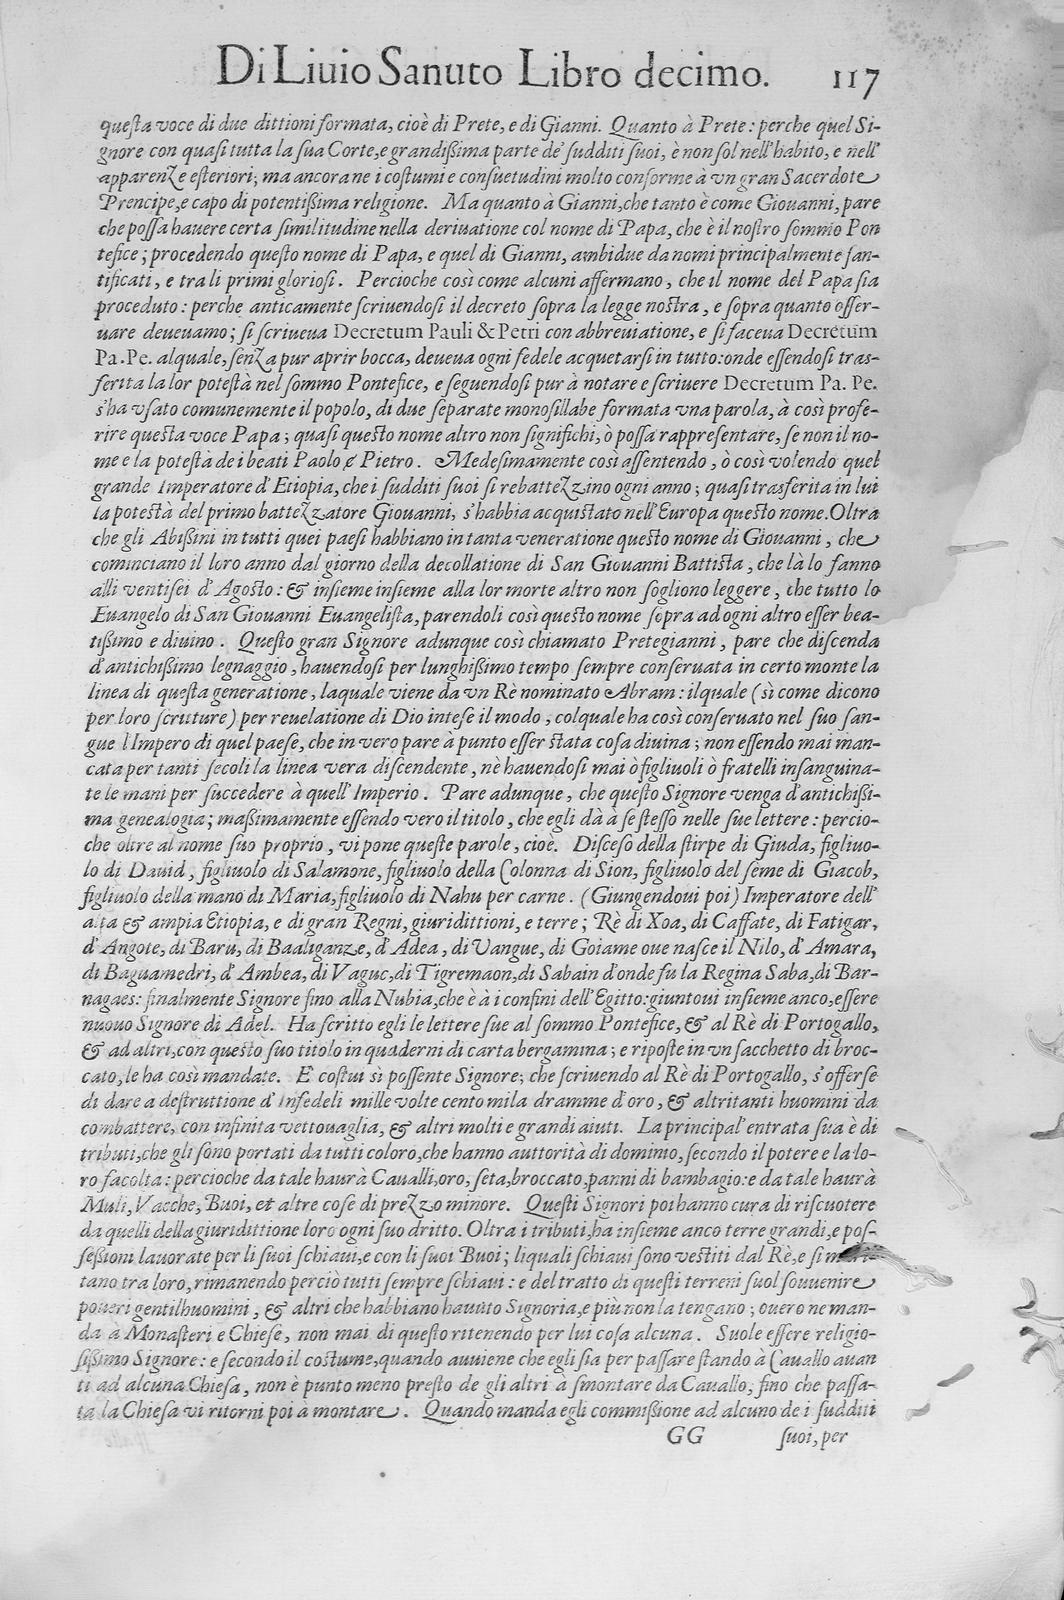 Di Liuio Sanuto Libro decimo. 117
questa voce di due dittioni formata, cioè di Prete, e di Gianni. Quanto à Prete: perche quel Si-
gnore con quasi tutta la sua Corte, e grandißima parte de' sudditi suoi, è non sol nell'habito, e nell'
apparenze esteriori; ma ancora ne i costumi e consuetudini molto conforme à vn gran Sacerdote
Prencipe, e capo di potentißima religione. Ma quanto à Gianni, che tanto è come Giouanni, pare
che possa hauere certa similitudine nella deriuatione col nome di Papa, che è il nostro sommo Pon
tefice; procedendo questo nome di Papa, e quel di Gianni, ambidue da nomi principalmente san-
tificati, e tra li primi gloriosi. Percioche così come alcuni affermano, che il nome del Papa sia
proceduto: perche anticamente scriuendosi il decreto sopra la legge nostra, e sopra quanto osser-
uare deueuamo; si scriueua Decretum Pauli & Petri con abbreuiatione, e si faceua Decretum
Pa. Pe. alquale, senza pur aprir bocca, deueua ogni fedele acquetarsi in tutto: onde essendosi tras-
ferita la lor potestà nel sommo Pontefice, e seguendosi pur à notare e scriuere Decretum Pa. Pe.
s'ha vsato comunemente il popolo, di due separate monosillabe formata vna parola, à così profe-
rire questa voce Papa; quasi questo nome altro non significhi, ò possa rappresentare, se non il no-
me e la potestà de i beati Paolo e Pietro. Medesimamente così assentendo, ò così volendo quel
grande Imperatore d'Etiopia, che i sudditi suoi si rebattezzino ogni anno; quasi trasferita in lui
la potestà del primo battezzatore Giouanni, s'habbia acquistato nell'Europa questo nome. Oltra
che gli Abißini in tutti quei paesi habbiano in tanta veneratione questo nome di Giouanni, che
cominciano il loro anno dal giorno della decollatione di San Giouanni Battista, che là lo fanno
alli ventisei d'Agosto: & insieme insieme alla lor morte altro non sogliono leggere, che tutto lo
Euangelo di San Giouanni Euangelista, parendoli così questo nome sopra ad ogni altro esser bea-
tißimo e diuino. Questo gran Signore adunque così chiamato Pretegianni, pare che discenda
d'antichißimo legnaggio, hauendosi per lunghißimo tempo sempre conseruata in certo monte la
linea di questa generatione, laquale viene da vn Rè nominato Abram: ilquale (sì come dicono
per loro scruture) per reuelatione di Dio intese il modo, colquale ha così conseruato nel suo san-
gue l'Impero di quel paese, che in vero pare à punto esser stata cosa diuina; non essendo mai man-
cata per tanti secoli la linea vera discendente, nè hauendosi mai ò figliuoli ò fratelli insanguina-
te le mani per succedere à quell'Imperio. Pare adunque, che questo Signore venga d'antichißi-
ma genealogia; maßimamente essendo vero il titolo, che egli dà à se stesso nelle sue lettere: percio-
che oltre al nome suo proprio, vi pone queste parole, cioè. Disceso della stirpe di Giuda, figliuo-
lo di Dauid, figliuolo di Salamone, figliuolo della Colonna di Sion, figliuolo del seme di Giacob,
figliuolo della mano di Maria, figliuolo di Nahu per carne. (Giungendoui poi) Imperatore dell'
alta & ampia Etiopia, e di gran Regni, giuridittioni, e terre; Rè di Xoa, di Caffate, di Fatigar,
d'Angote, di Baru, di Baaliganze, d'Adea, di Vangue, di Goiame oue nasce il Nilo, d'Amara,
di Baguamedri, d'Ambea, di Vaguc, di Tigremaon, di Sabain d'onde fu la Regina Saba, di Bar-
nagaes: finalmente Signore fino alla Nubia, che è à i confini dell'Egitto: giuntoui insieme anco, essere
nuouo Signore di Adel. Ha scritto egli le lettere sue al sommo Pontefice, & al Rè di Portogallo,
& ad altri, con questo suo titolo in quaderni di carta bergamina; e riposte in vn sacchetto di broc-
cato, le ha così mandate. E' costui sì possente Signore; che scriuendo al Rè di Portogallo, s'offerse
di dare a destruttione d'Infedeli mille volte cento mila dramme d'oro, & altritanti huomini da
combattere, con infinita vettouaglia, & altri molti e grandi aiuti. La principal'entrata sua è di
tributi, che gli sono portati da tutti coloro, che hanno auttorità di dominio, secondo il potere e la lo-
ro facolta: percioche da tale haurà Caualli, oro, seta, broccato, panni di bambagio: e da tale haurà
Muli, Vacche, Buoi, et altre cose di prezzo minore. Questi Signori poi hanno cura di riscuotere
da quelli della giuridittione loro ogni suo dritto. Oltra i tributi, ha insieme anco terre grandi, e pos-
seßioni lauorate per li suoi schiaui, e con li suoi Buoi; liquali schiaui sono vestiti dal Rè, e si mari-
tano tra loro, rimanendo perciò tutti sempre schiaui: e del tratto di questi terreni suol souuenire
poueri gentilhuomini, & altri che habbiano hauuto Signoria, e più non la tengano; ouero ne man-
da à Monasteri e Chiese, non mai di questo ritenendo per lui cosa alcuna. Suole essere religio-
sißimo Signore: e secondo il costume, quando auuiene che egli sia per passare stando à Cauallo auan
ti ad alcuna Chiesa, non è punto meno presto de gli altri à smontare da Cauallo, fino che passa-
ta la Chiesa vi ritorni poi à montare. Quando manda egli commißione ad alcuno de i sudditi
GG suoi, per